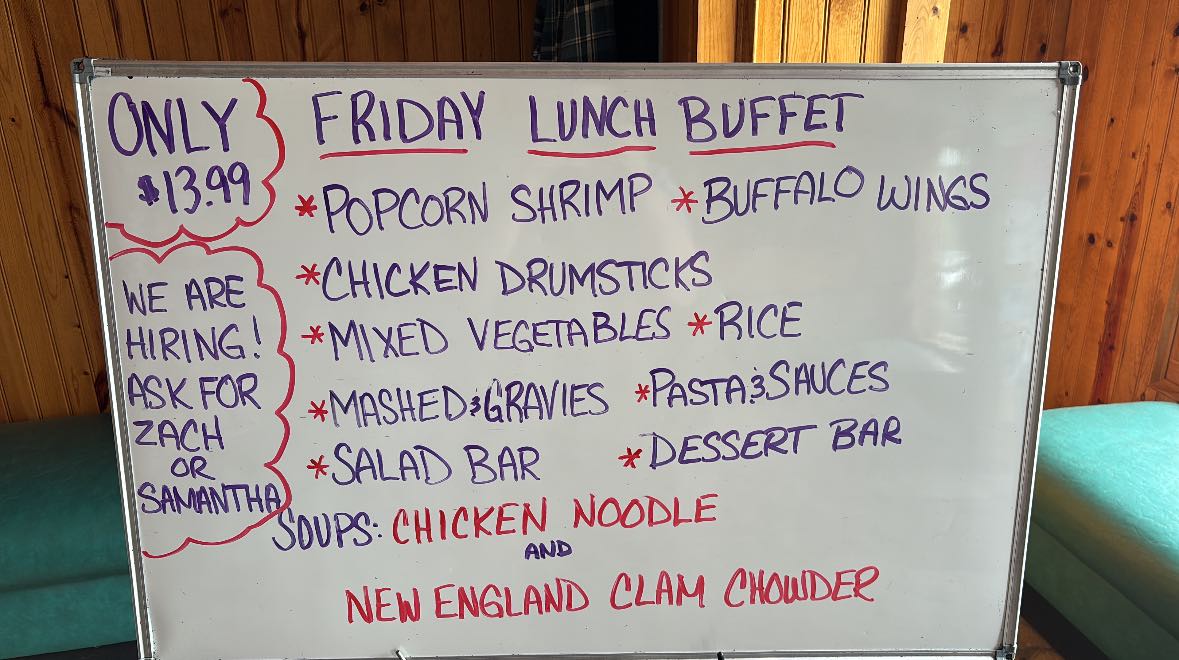 ONLY
$13.99
WE ARE
HIRING!
ASK FOR
ZACH
OR
SAMANTHA
FRIDAY LUNCH BUFFET
*POPCORN SHRIMP *BUFFALO WINGS
*CHICKEN DRUMSTICKS
*MIXED VEGETABLES *RICE
*MASHED & GRAVIES *PASTA & SAUCES
*SALAD BAR *DESSERT BAR
SOUPS: CHICKEN NOODLE
AND
NEW ENGLAND CLAM CHOWDER